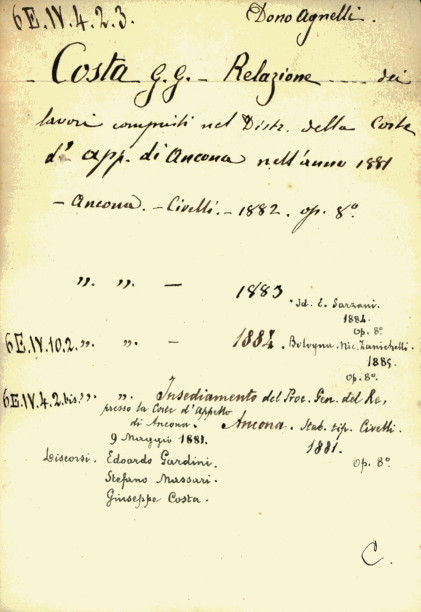 6E.IV.4.2.3. Dono Agnelli.
Costa G.G. - Relazione dei
lavori compiuti nel Distr. della Corte
d'app. di Ancona nell'anno 1881
- Ancona. - Civelli. - 1882. op. 8º.
" " - 1883
Id. E. Sarzani.
1884.
op. 8º
6E.IV.10.2. " " - 1884. Bologna. Nic. Zanichelli.
1885.
op. 8º.
6E.IV.4.2.bis. " " Insediamento del Proc. Gen. del Re,
presso la Corte d'Appello
di Ancona. Ancona. Stab. tip. Civelli.
9 Maggio 1881. 1881.
Op. 8º
Discorsi. Edoardo Gardini.
Stefano Massari.
Giuseppe Costa.
C.